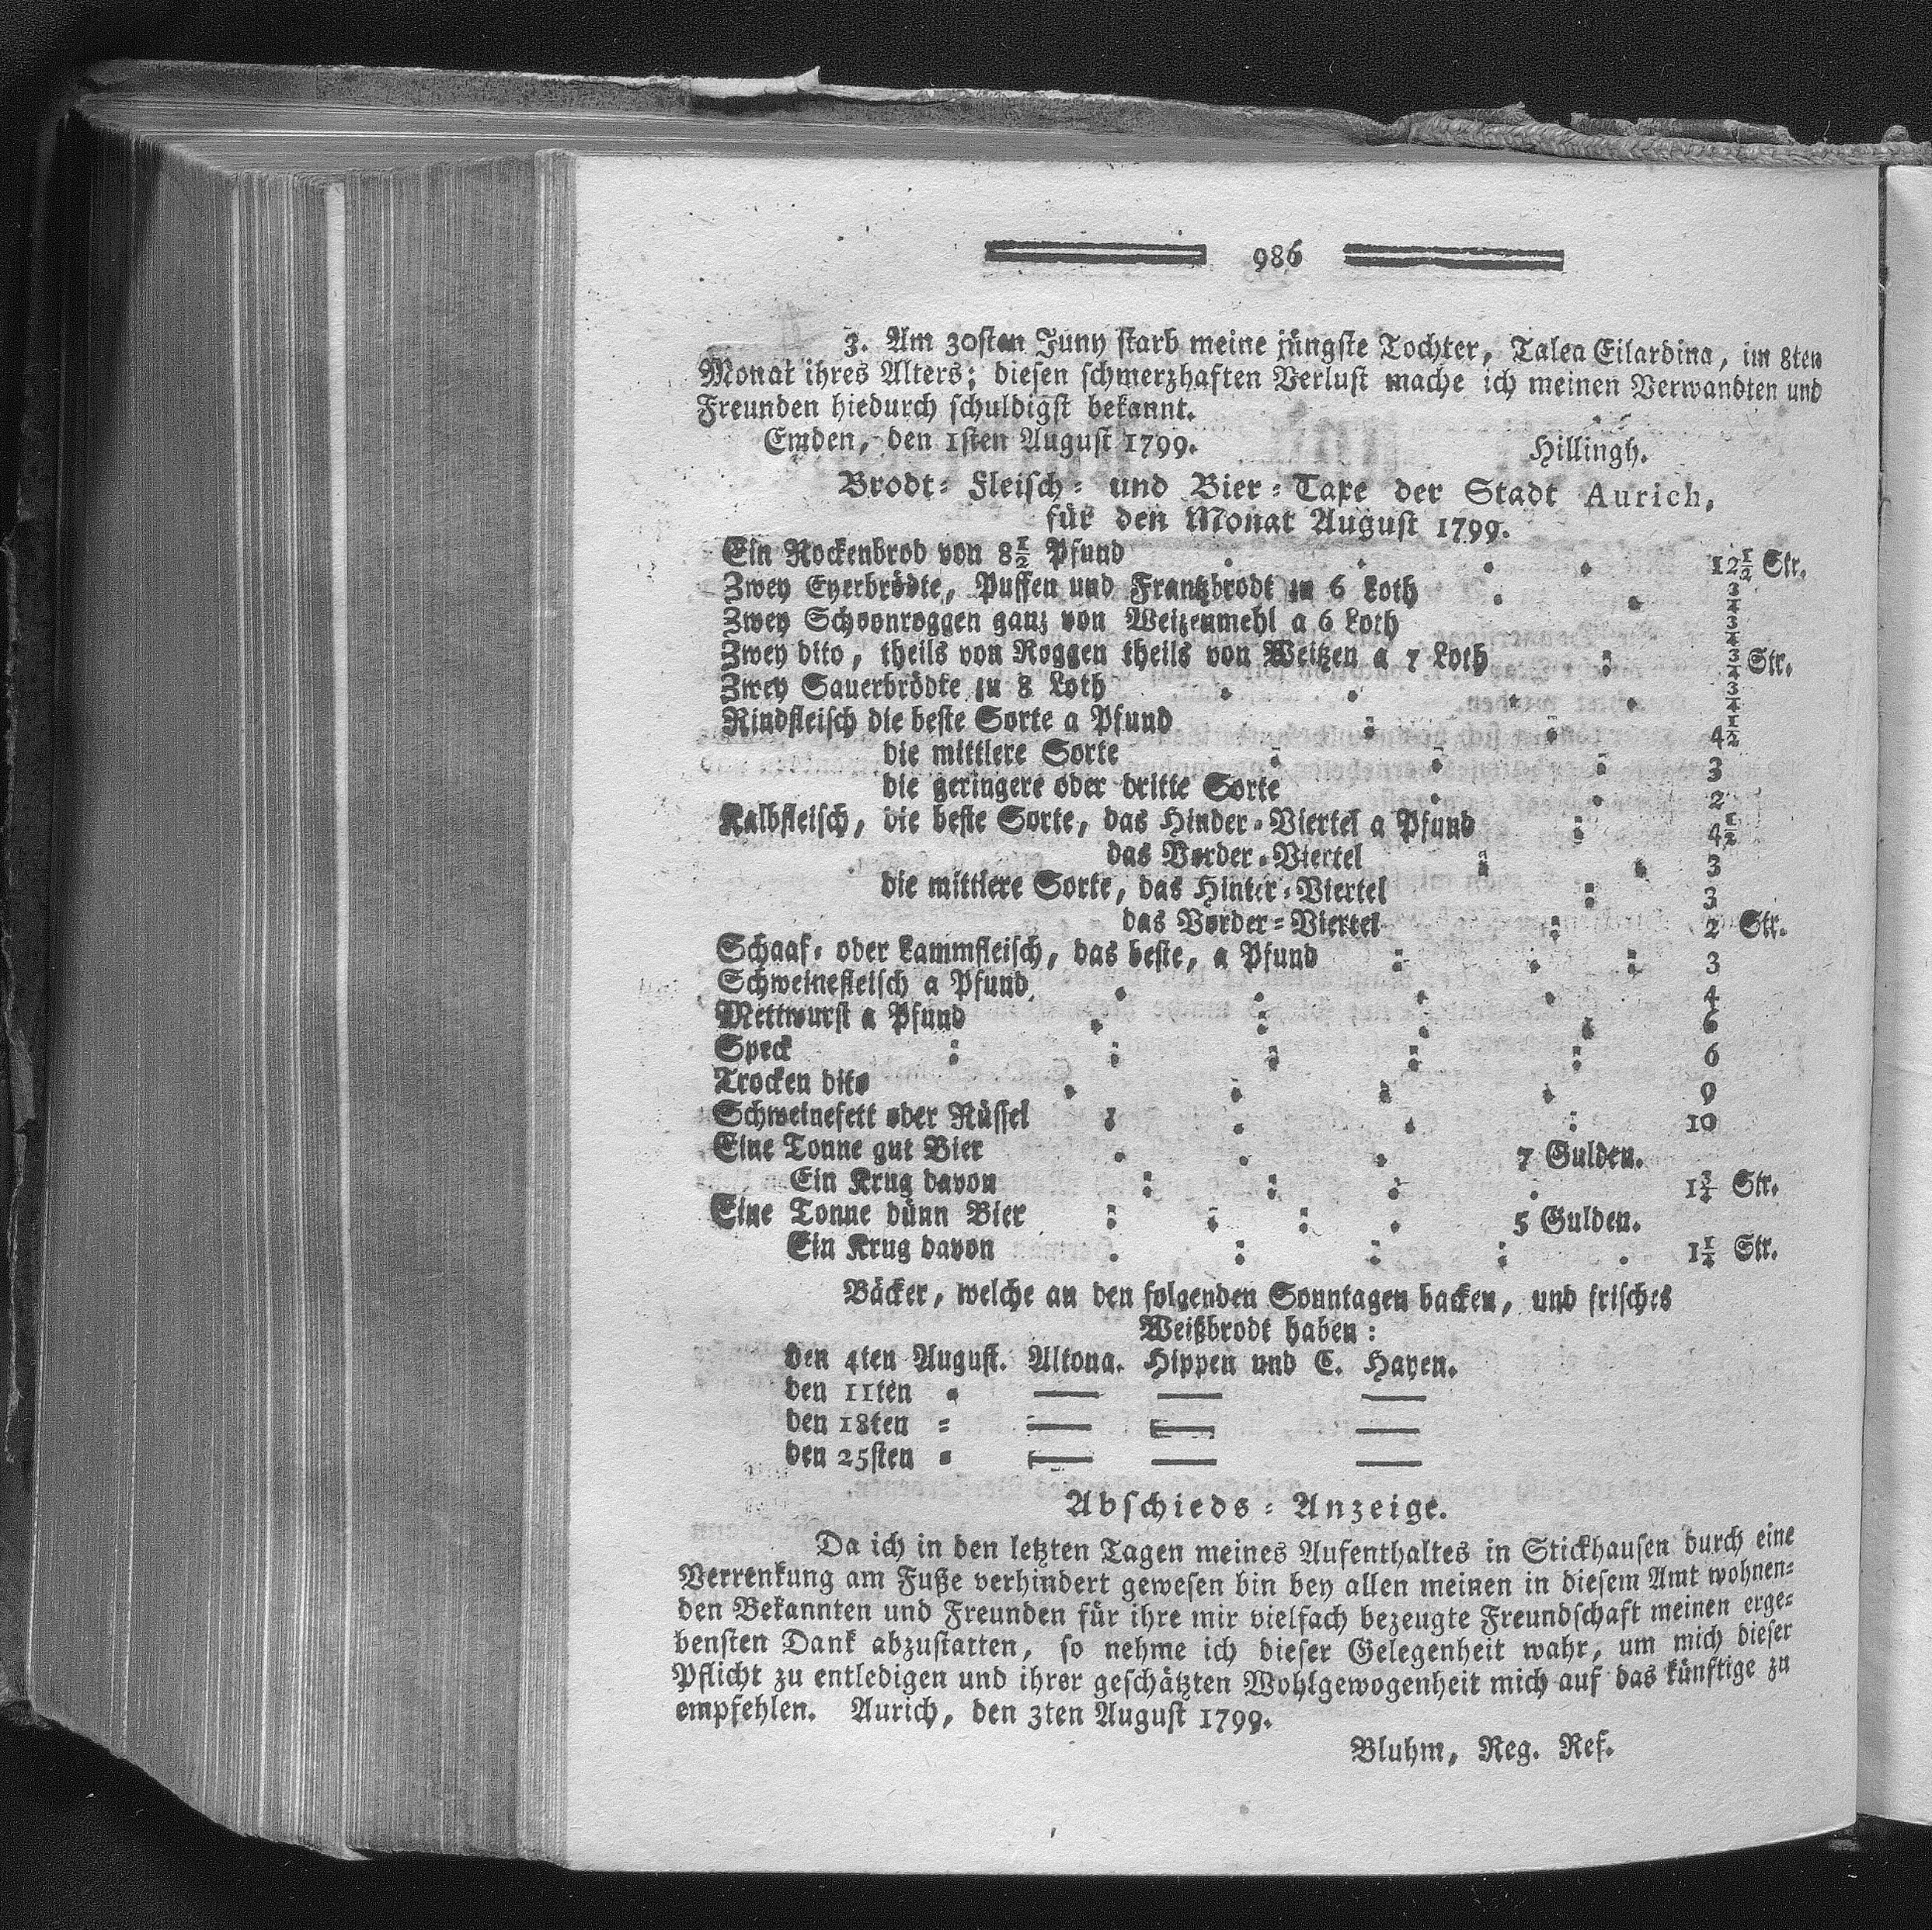 986
3. Am 30sten Juny starb meine jüngste Tochter, Talea Eilardina, im 8ten
Monat ihres Alters; diesen schmerzhaften Verlust mache ich meinen Verwandten und
Freunden hiedurch schuldigst bekannt.
Emden, den 1sten August 1799. Hillingh.
Brodt= Fleisch= und Bier=Taxe der Stadt Aurich,
für den Monat August 1799.
Ein Rockenbrod von 8½ Pfund 12½ Str.
Zwey Eyerbrödte, Puffen und Frantzbrodt zu 6 Loth ¾
Zwey Schoonroggen ganz von Weizenmehl a 6 Loth ¾
Zwey dito, theils von Roggen theils von Weitzen a 7 Loth ¾ Str.
Zwey Sauerbrödte zu 8 Loth ¾
Rindfleisch die beste Sorte a Pfund 4½
die mittlere Sorte 3
die geringere oder dritte Sorte 2
Kalbfleisch, die beste Sorte, das Hinder=Viertel a Pfund 4½
das Vorder=Viertel 3
die mittlere Sorte, das Hinter=Viertel 3
das Vorder=Viertel 2 Str.
Schaaf= oder Lammfleisch, das beste, a Pfund 3
Schweinefleisch a Pfund 4
Mettwurst a Pfund 6
Speck 6
Trocken dito 9
Schweinefett oder Rüssel 10
Eine Tonne gut Bier 7 Gulden.
Ein Krug davon 1¾ Str.
Eine Tonne dünn Bier 5 Gulden.
Ein Krug davon 1¼ Str.
Bäcker, welche an den folgenden Sonntagen backen, und frisches
Weißbrodt haben:
den 4ten August. Altona. Hippen und C. Hayen.
den 11ten = — — —
den 18ten = — — —
den 25sten = — — —
Abschieds=Anzeige.
Da ich in den letzten Tagen meines Aufenthaltes in Stickhausen durch eine
Verrenkung am Fuße verhindert gewesen bin bey allen meinen in diesem Amt wohnen=
den Bekannten und Freunden für ihre mir vielfach bezeugte Freundschaft meinen erge=
bensten Dank abzustatten, so nehme ich dieser Gelegenheit wahr, um mich dieser
Pflicht zu entledigen und ihrer geschätzten Wohlgewogenheit mich auf das künftige zu
empfehlen. Aurich, den 3ten August 1799.
Bluhm, Reg. Ref.